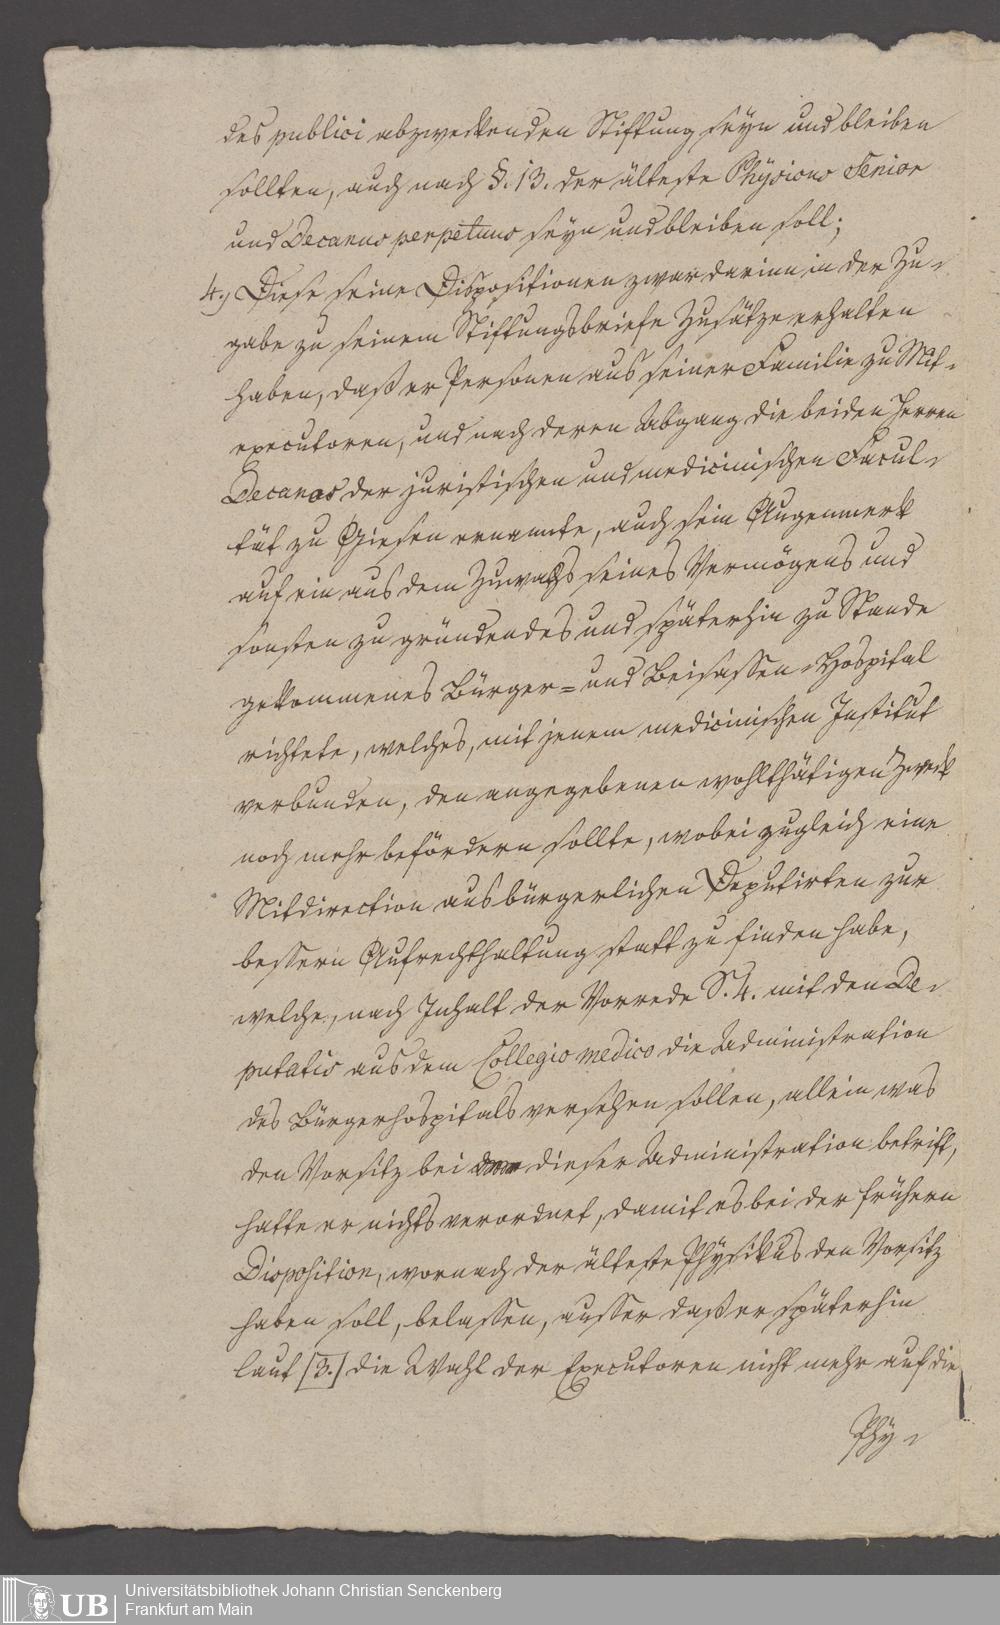 des publici abzweckenden Stiftung seyn und bleiben
sollten, auch nach §. 13. der älteste Physicus Senior
und Decanus perpetuus seyn und bleiben soll;
4.) Diese seine Dispositionen zwar darinn in der Zu-
gabe zu seinem Stiftungsbriefe Zusätze erhalten
haben, daß er Personen aus seiner Familie zu Mit-
executoren, und nach deren Abgang die beiden Herren
Decanos der juristischen und medicinischen Facul-
tät zu Giesen ernannte, auch sein Augenmerk
auf ein aus dem Zuwachs seines Vermögens und
sonsten zu gründendes und späterhin zu Stande
gekommenes Bürger- und Beisassen-Hospital
richtete, welches, mit jenem medicinischen Institut
verbunden, den angegebenen wohlthätigen Zweck
noch mehr befördern sollte, wobei zugleich eine
Mitdirection aus bürgerlichen Deputirten zur
bessern Aufrechthaltung statt zu finden habe,
welche, nach Inhalt der Vorrede S. 4. mit den De-
putatis aus dem Collegio medico die Administration
des Bürgerhospitals versehen sollen, allein was
den Vorsitz bei dieser Administration betrift,
hatte er nichts verordnet, damit es bei der frühern
Disposition, wornach der älteste Physikus den Vorsitz
haben soll, belassen, ausser daß er späterhin
laut [3.] die Wahl der Executoren nicht mehr auf die
Phy-
UB
Universitätsbibliothek Johann Christian Senckenberg
Frankfurt am Main